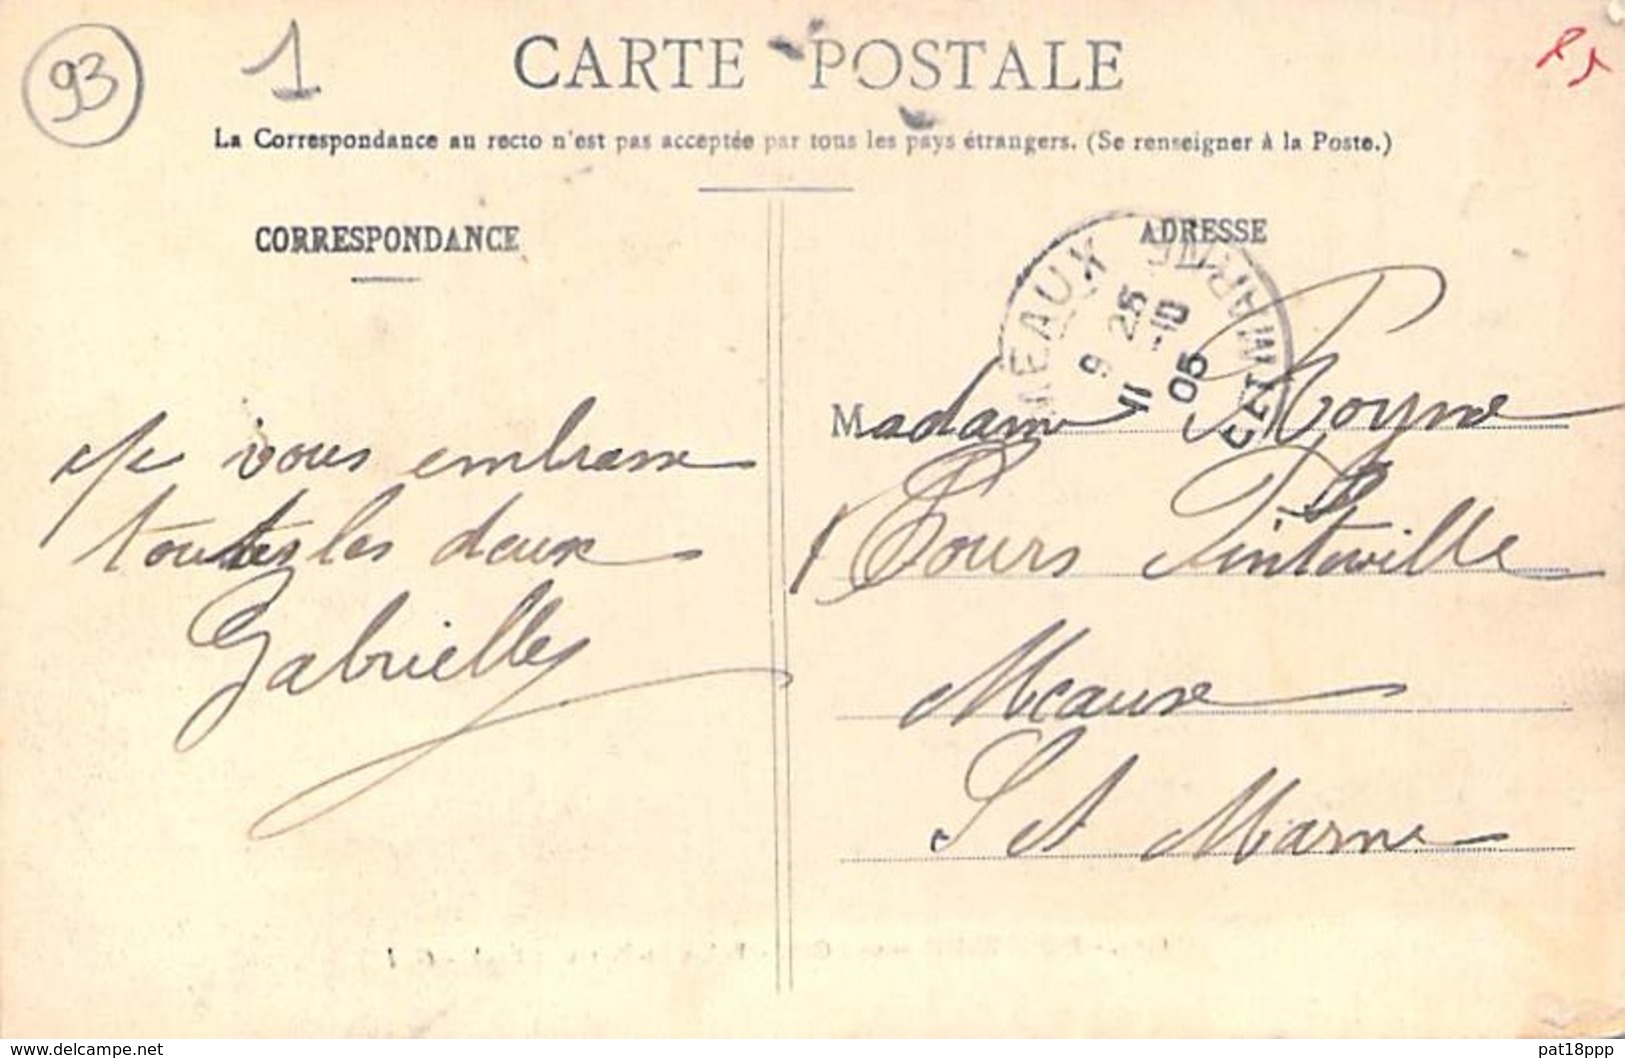 93
1
CARTE POSTALE
La Correspondance au recto n'est pas acceptée par tous les pays étrangers. (Se renseigner à la Poste.)
CORRESPONDANCE
ADRESSE
MEAUX
9 25
11 -10
05
Je vous embrasse
toutes les deux
Gabrielle
Madame Royne
Cours Pinteville
Meaux
S et Marne
www.delcampe.net
pat18ppp